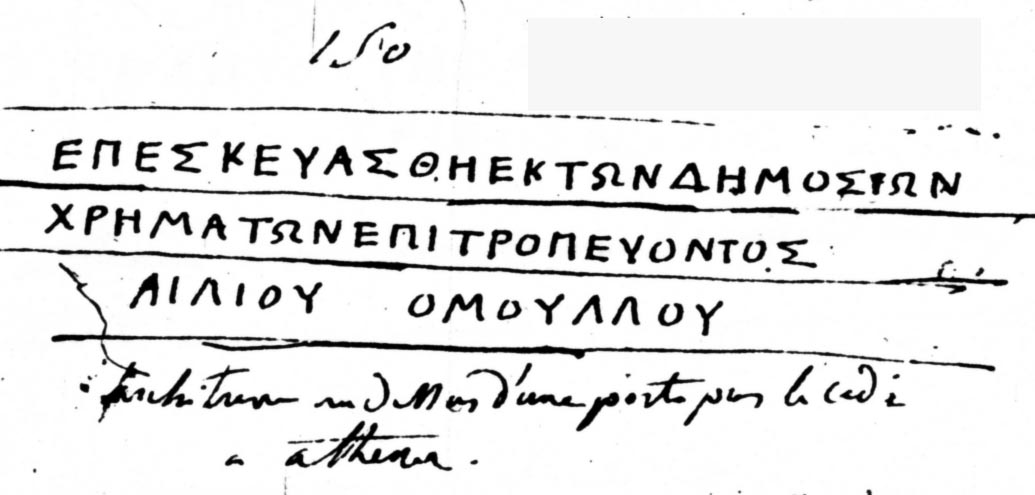 150
ΕΠΕΣΚΕΥΑΣΘΗΕΚΤΩΝΔΗΜΟΣΙΩΝ
ΧΡΗΜΑΤΩΝΕΠΙΤΡΟΠΕΥΟΝΤΟΣ
ΑΙΛΙΟΥ ΟΜΟΥΛΛΟΥ
d'une porte le cadi
a athenes.